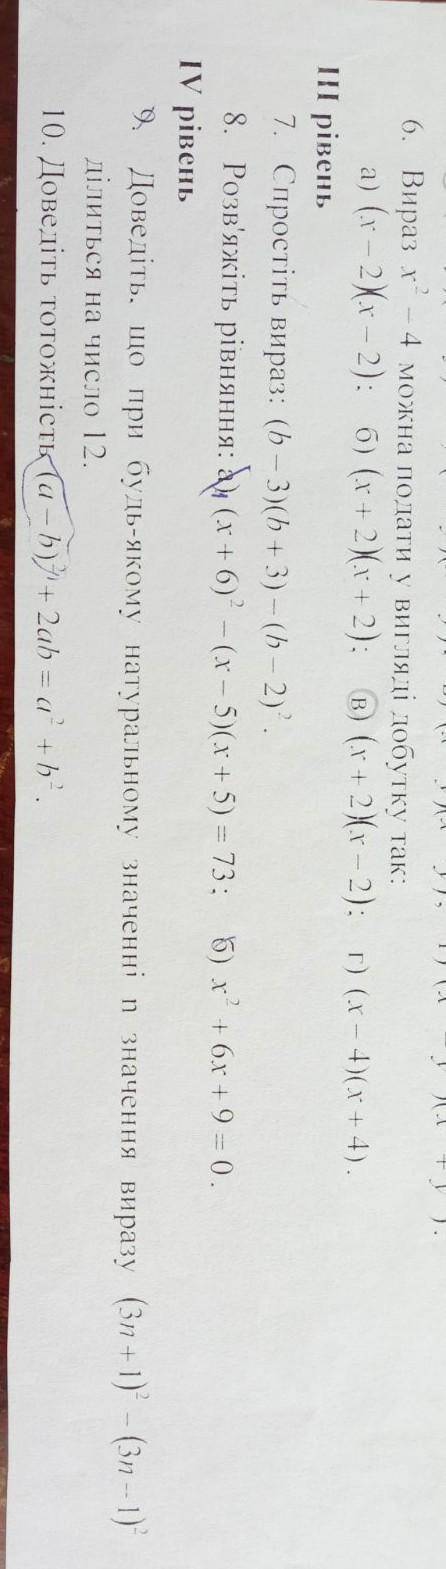 6. Вираз x² – 4 можна подати у вигляді добутку так:
а) (x – 2)(x – 2); б) (x + 2)(x + 2); в) (x + 2)(x – 2); г) (x – 4)(x + 4).
III рівень
7. Спростіть вираз: (b – 3)(b + 3) – (b – 2)².
8. Розв'яжіть рівняння: а) (x + 6)² – (x – 5)(x + 5) = 73; б) x² + 6x + 9 = 0.
IV рівень
9. Доведіть, що при будь-якому натуральному значенні n значення виразу (3n + 1)² – (3n – 1)²
ділиться на число 12.
10. Доведіть тотожність (a – b)² + 2ab = a² + b².